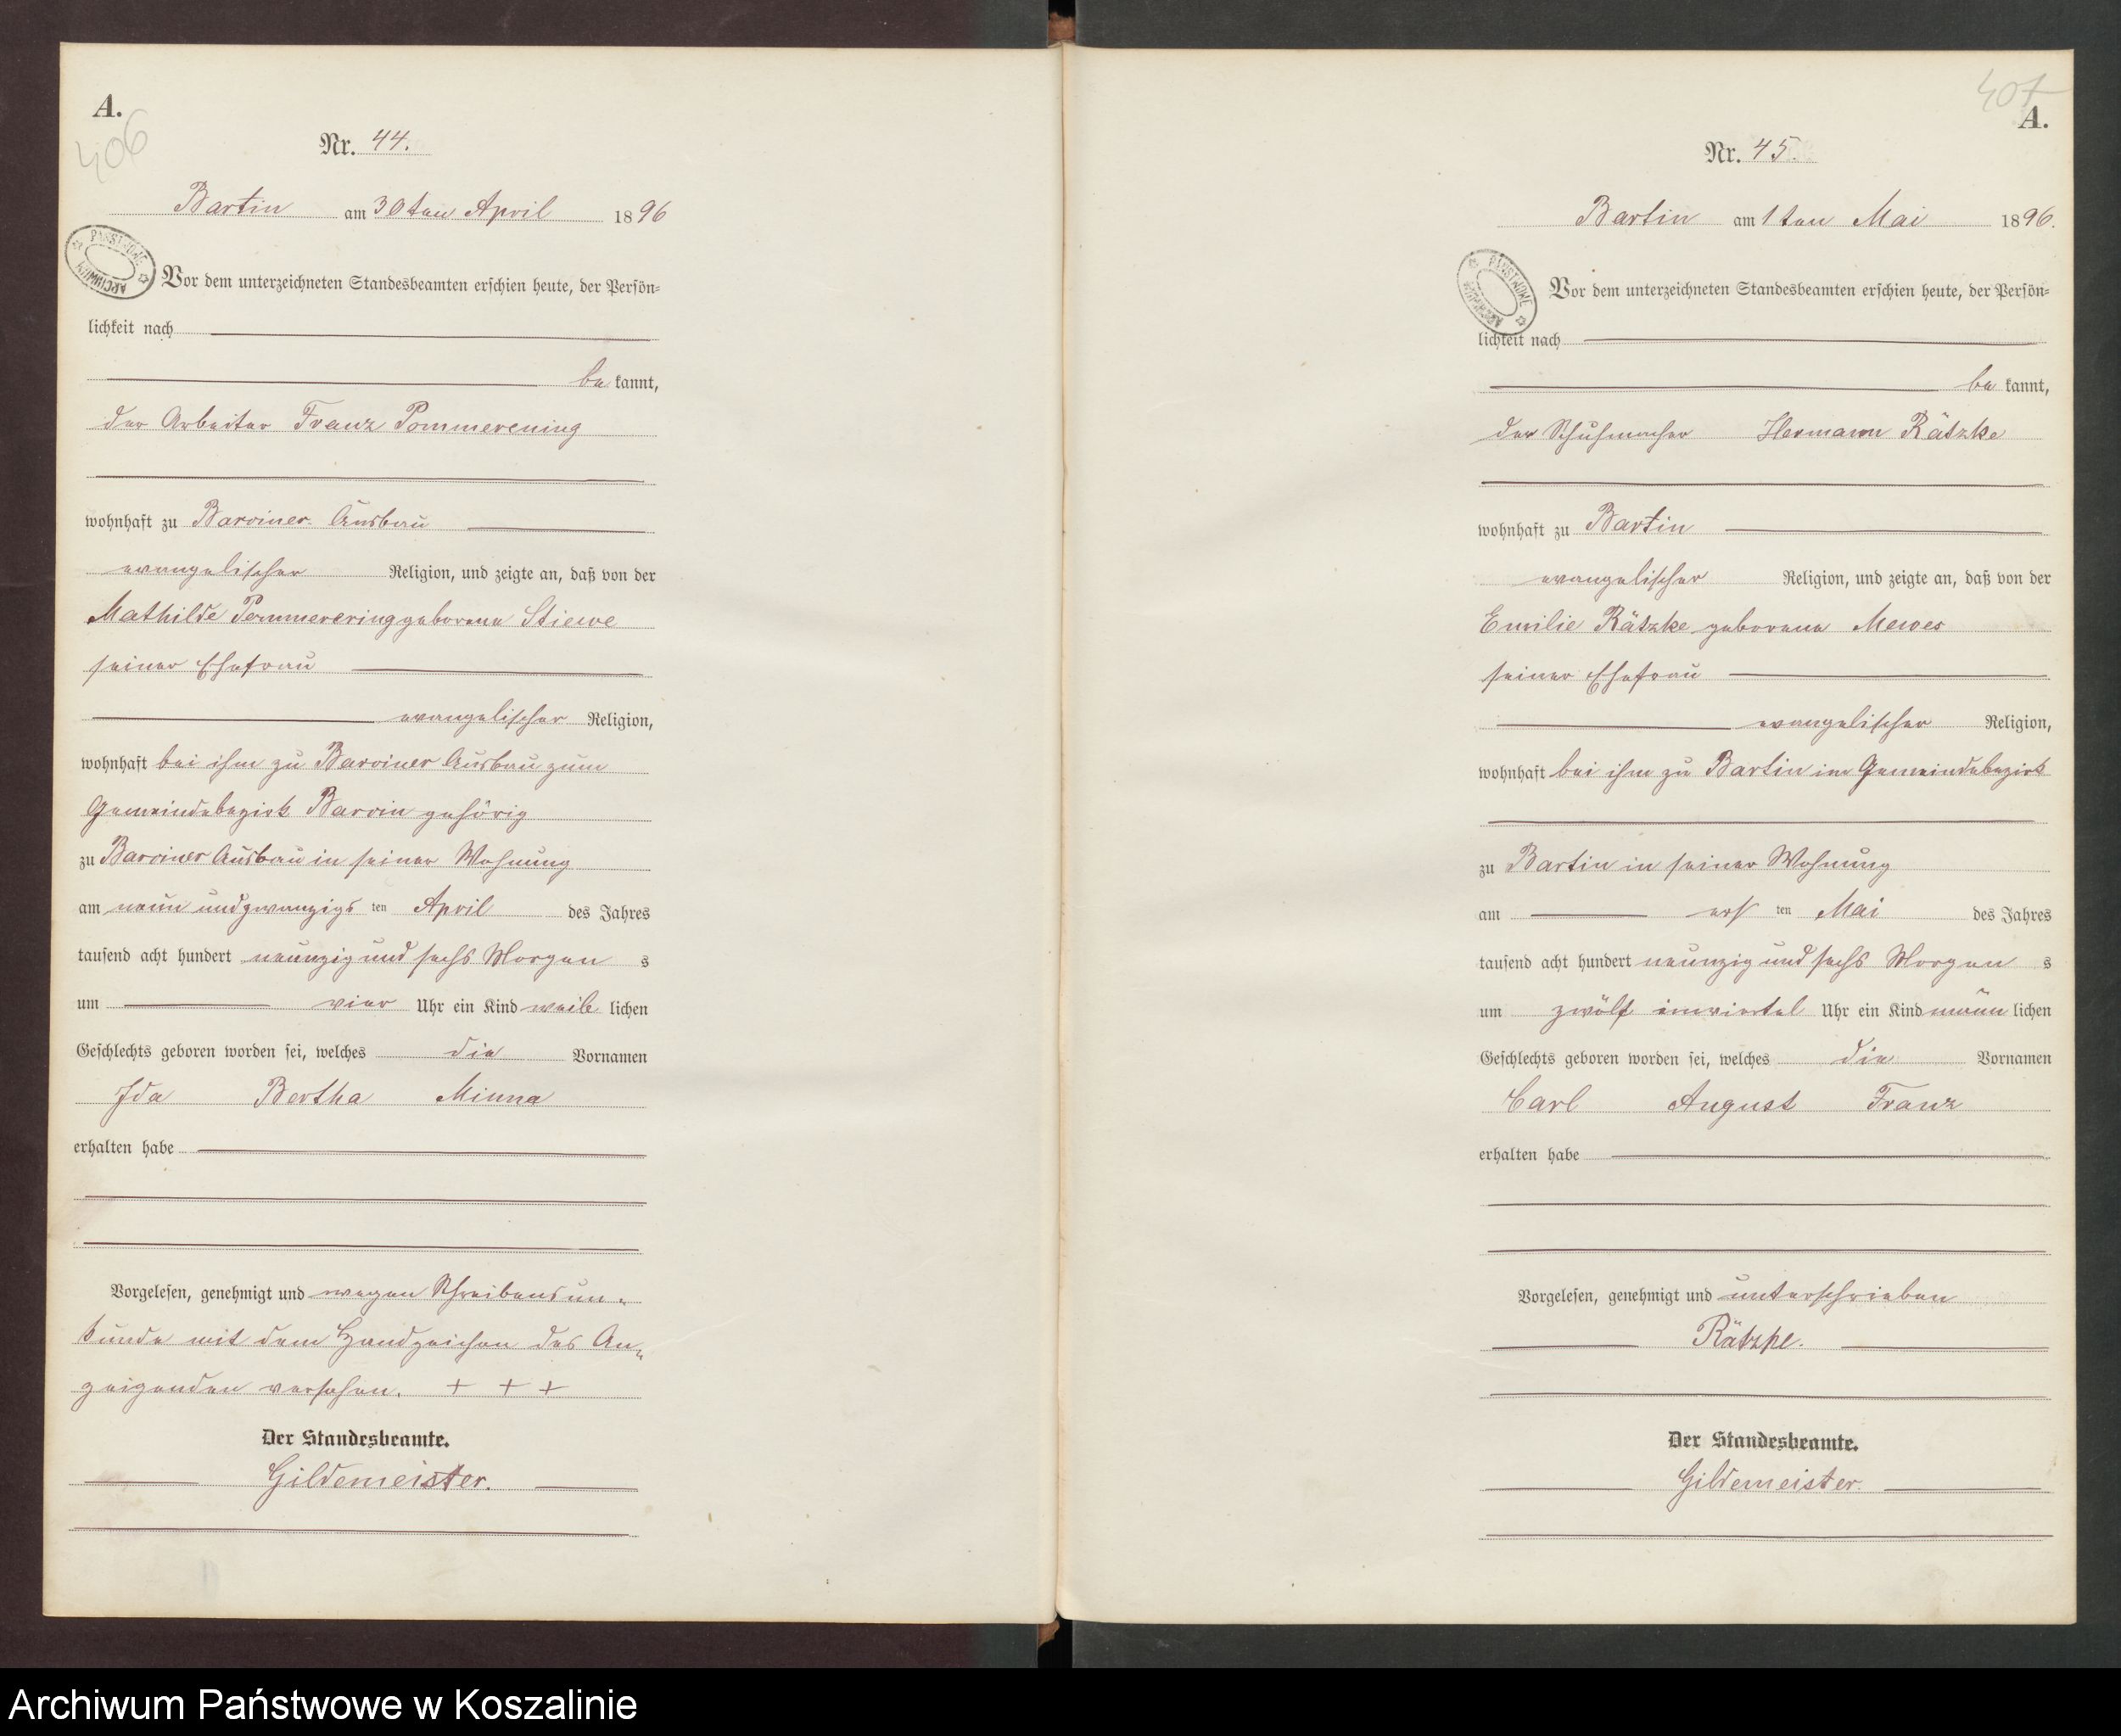 A.
406
Nr. 44.
Bartin am 30ten April 1896
PAŃSTWOWE ARCHIWUM
Vor dem unterzeichneten Standesbeamten erschien heute, der Persön-
lichkeit nach
be kannt,
der Arbeiter Franz Pommerening
wohnhaft zu Barviner Ausbau
evangelischer Religion, und zeigte an, daß von der
Mathilde Pommerering geborene Stiewe
seiner Ehefrau
evangelischer Religion,
wohnhaft bei ihm zu Barviner Ausbau zum
Gemeindebezirk Barvin gehörig
zu Barviner Ausbau in seiner Wohnung
am neun und zwanzigs ten April des Jahres
tausend acht hundert neunzig und sechs Morgen s
um vier Uhr ein Kind weib lichen
Geschlechts geboren worden sei, welches die Vornamen
Ida Bertha Minna
erhalten habe
Vorgelesen, genehmigt und wegen Schreibensun-
kunde mit dem Handzeichen des An-
zeigenden versehen. + + +
Der Standesbeamte.
Gildemeister.
407
A.
Nr. 45.
Bartin am 1ten Mai 1896.
PAŃSTWOWE ARCHIWUM
Vor dem unterzeichneten Standesbeamten erschien heute, der Persön-
lichkeit nach
be kannt,
der Schuhmacher Hermann Rätzke
wohnhaft zu Bartin
evangelischer Religion, und zeigte an, daß von der
Emilie Rätzke geborene Mewes
seiner Ehefrau
evangelischer Religion,
wohnhaft bei ihm zu Bartin im Gemeindebezirk
zu Bartin in seiner Wohnung
am ers ten Mai des Jahres
tausend acht hundert neunzig und sechs Morgen s
um zwölf einviertel Uhr ein Kind männ lichen
Geschlechts geboren worden sei, welches die Vornamen
Carl August Franz
erhalten habe
Vorgelesen, genehmigt und unterschrieben
Rätzke.
Der Standesbeamte.
Gildemeister.
Archiwum Państwowe w Koszalinie